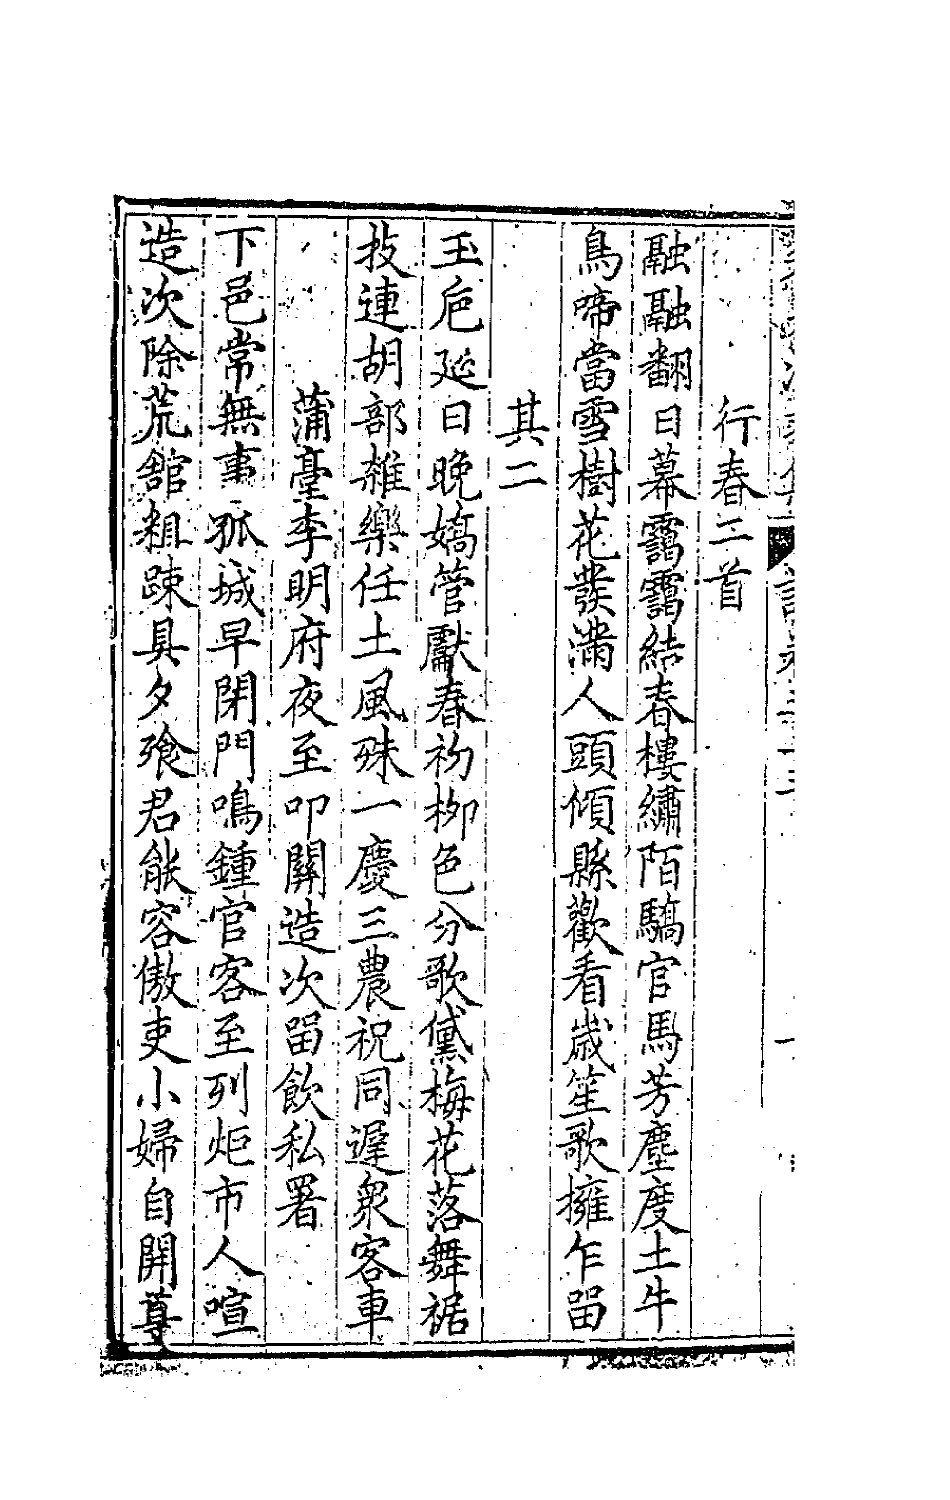 行春三首
融融翻日幕靄靄結春樓繡陌驕官馬芳塵度土牛
鳥啼當雪樹花發滿人頭傾縣歡看歲笙歌擁乍留
其二
玉巵延日晚嬌管獻春初柳色分歌黛梅花落舞裾
技連胡部雜樂任土風殊一慶三農祝同遲衆客車
蒲臺李明府夜至叩關造次留飲私署
下邑常無事孤城早閉門鳴鍾官客至列炬市人喧
造次除荒館粗踈具夕飱君能容傲吏小婦自開尊